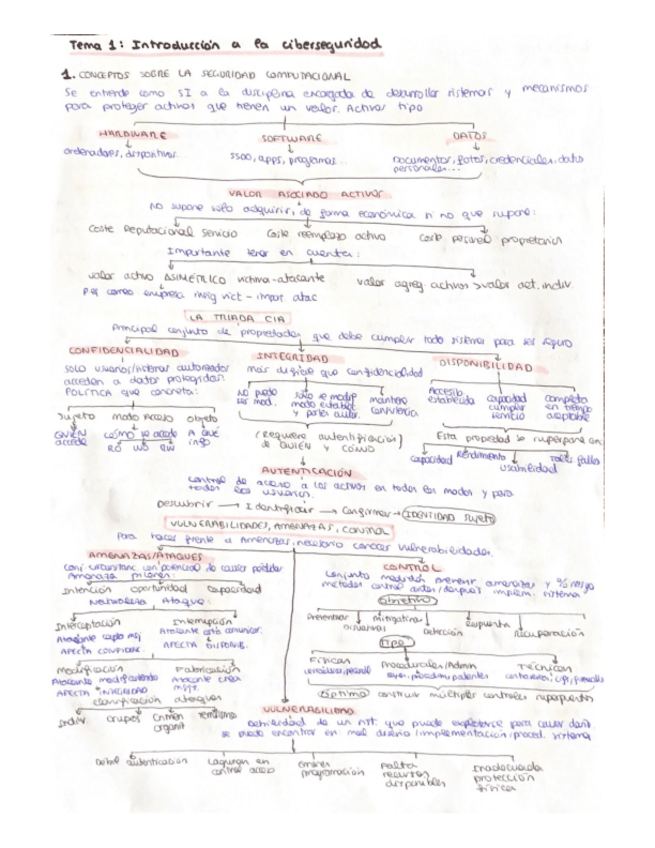 Tema 1: Introducción a la ciberseguridad
1. CONCEPTOS SOBRE LA SEGURIDAD COMPUTACIONAL
Se entiende como SI a la disciplina encargada de desarrollar sistemas y mecanismos
para proteger activos que tienen un valor. Activos tipo
HARDWARE SOFTWARE DATOS
ordenadores, dispositivos... SSOO, apps, programas... Documentos, fotos, credenciales, datos
personales...
VALOR ASOCIADO ACTIVOS
No supone solo adquirir, de forma económica si no que supone:
Coste Reputacional servicio Coste reemplazo activo Coste personal propietario
Importante tener en cuenta:
valor activo ASIMÉTRICO victima-atacante valor agreg. activos > valor act. indiv
LA TRIADA CIA
Principal conjunto de propiedades que debe cumplir todo sistema para ser seguro
CONFIDENCIALIDAD INTEGRIDAD DISPONIBILIDAD
SOLO usuarios/sistemas autorizados más difícil que confidencialidad
acceden a datos protegidos.
POLÍTICA que concreta:
No puede ser mod. Solo se modif modo establ y partes autor. mantiene
Accesib establecida capacidad cumplir servicio completa en tiempo aceptable
Sujeto modo Acceso objeto
QUIÉN accede cómo se accede A QUÉ
RO WO RW
(Requiere autentificación)
de QUIÉN y CÓMO
Esta propiedad se superpone en:
capacidad Rendimiento usabilidad Toler. fallos
AUTENTICACIÓN
control de acceso a los activos en todos los modos y para
todos los usuarios.
Descubrir → Identificar → Confirmar → IDENTIDAD sujeto
VULNERABILIDADES, AMENAZAS, CONTROL
Para hacer frente a Amenazas, necesario conocer vulnerabilidades.
AMENAZAS/ATAQUES CONTROL
conj. circunstanc. con potencial de causar pérdidas
Intención oportunidad capacidad
Naturaleza Ataque:
Interceptación Interrupción
AFECTA CONFIDENC. AFECTA DISPONIB.
Modificación Fabricación
Atacante modificando Atacante crea
AFECTA INTEGRIDAD
clasificación ataques
Indiv. Grupos Crimen organiz Terrorismo
conjunto medidas prevenir amenazas y % riesgo
métodos control antes/después implem. sistema
objetivo
Preventivas Disuasivas mitigativas Detección respuesta recuperación
Tipo
Físicas Procedurales/Admin Técnicas
Óptimo construir múltiples controles superpuestos
VULNERABILIDAD
Debilidad de un sist. que puede explotarse para causar daño.
se puede encontrar en mal diseño/implementación/proced. sistema
Débil autenticación Lagunas en control acceso Errores programación Falta recursos disponibles Inadecuada protección física